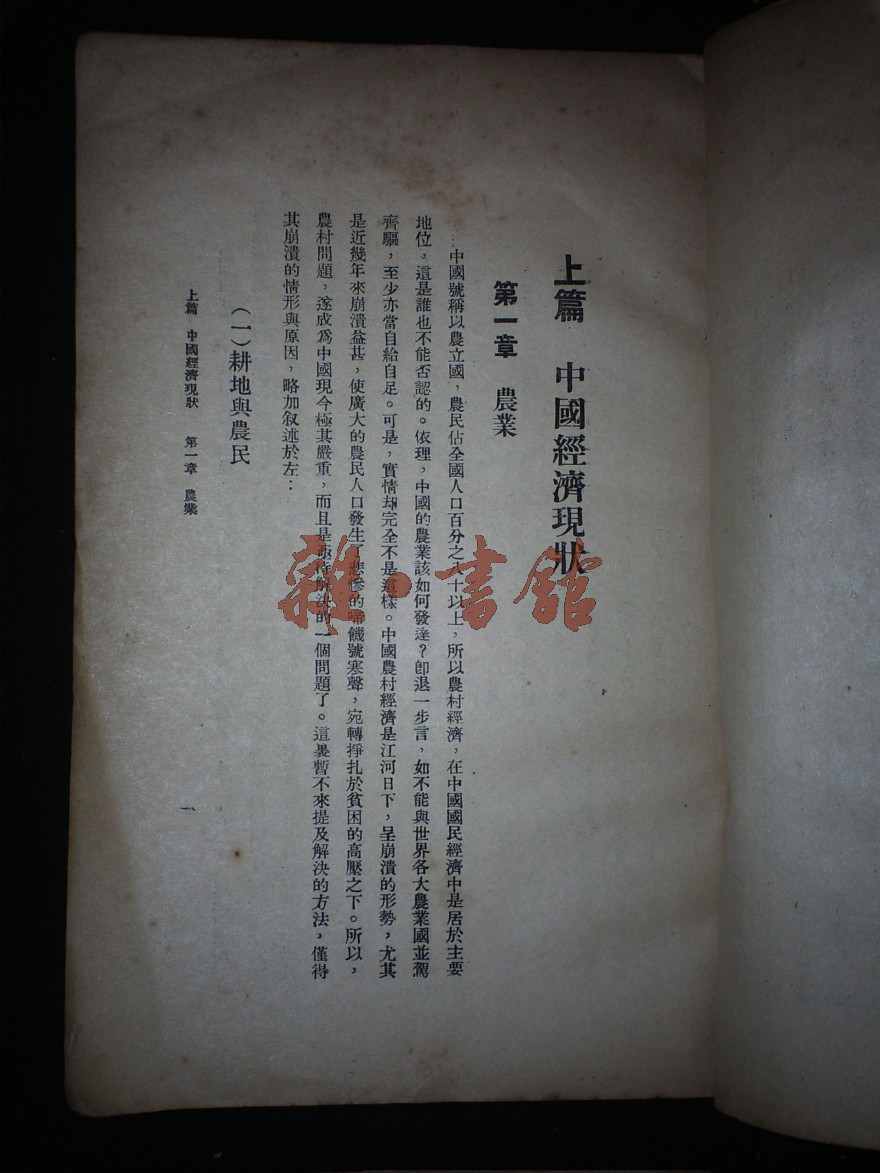 上篇　中國經濟現狀
第一章　農業
中國號稱以農立國，農民佔全國人口百分之八十以上，所以農村經濟，在中國國民經濟中是居於主要
地位，這是誰也不能否認的。依理，中國的農業該如何發達？卽退一步言，如不能與世界各大農業國並駕
齊驅，至少亦當自給自足。可是，實情却完全不是這樣。中國農村經濟是江河日下，呈崩潰的形勢，尤其
是近幾年來崩潰益甚，使廣大的農民人口發生了悲慘的啼饑號寒聲，宛轉掙扎於貧困的高壓之下。所以，
農村問題，遂成爲中國現今極其嚴重，而且是亟待解決的一個問題了。這裏暫不來提及解決的方法，僅得
其崩潰的情形與原因，略加叙述於左：
（一）耕地與農民
上篇　中國經濟現狀　第一章　農業
一
雜·書館